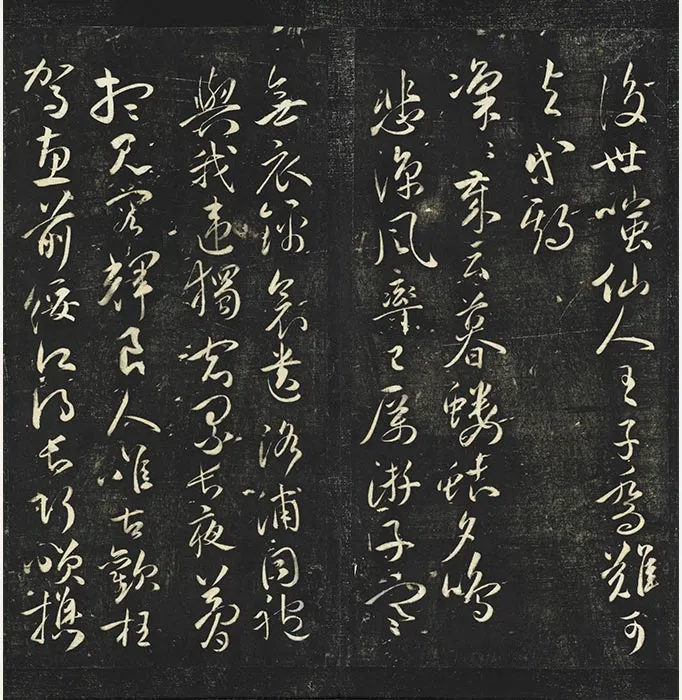 後世嗤仙人王子喬難可
與等期
凜〻歲云暮螻蛄夕鳴
悲涼風率已厲遊子寒
無衣錦衾遺洛浦同袍
與我違獨宿累長夜夢
想見容輝良人惟古歡枉
駕惠前綏願得長巧笑携